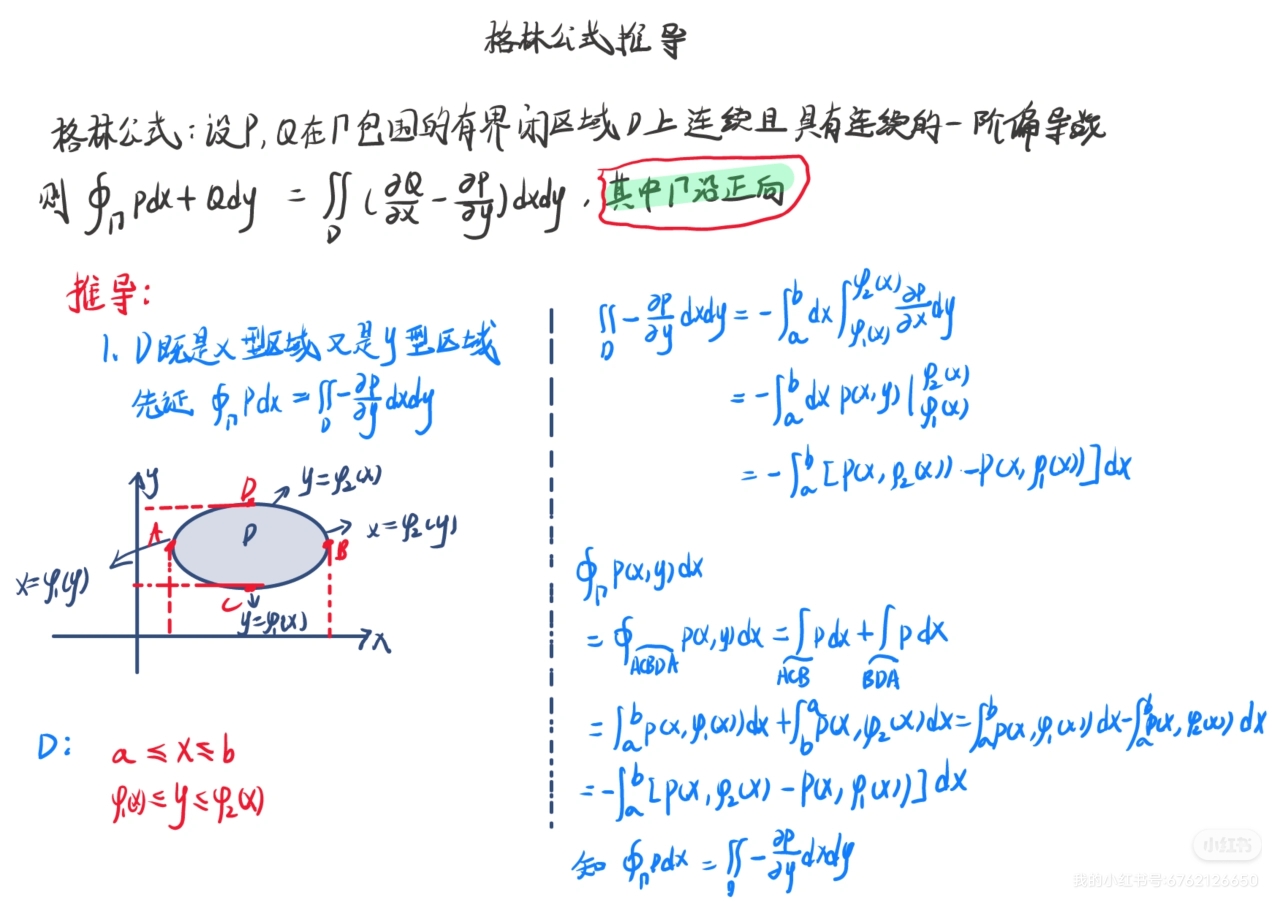 格林公式推导
格林公式:设P,Q在Γ包围的有界闭区域D上连续且具有连续的一阶偏导数
则 ∮_Γ Pdx+Qdy = ∬_D (∂Q/∂x - ∂P/∂y)dxdy,其中Γ沿正向
推导:
1、D既是x型区域又是y型区域
先证 ∮_Γ Pdx = ∬_D -∂P/∂y dxdy
y
D
y=φ₂(x)
A
D
x=φ₂(y)
B
x=φ₁(y)
C
y=φ₁(x)
x
D:
a≤x≤b
φ₁(x)≤y≤φ₂(x)
∬_D -∂P/∂y dxdy = -∫_a^b dx∫_{φ₁(x)}^{φ₂(x)} ∂P/∂x dy
= -∫_a^b dx P(x,y)|_{φ₁(x)}^{φ₂(x)}
= -∫_a^b [P(x,φ₂(x)) - P(x,φ₁(x))]dx
∮_Γ P(x,y)dx
= ∮_{ACBDA} P(x,y)dx = ∫_{ACB} Pdx + ∫_{BDA} Pdx
= ∫_a^b P(x,φ₁(x))dx + ∫_b^a P(x,φ₂(x)dx = ∫_a^b P(x,φ₁(x))dx - ∫_a^b P(x,φ₂(x)) dx
= -∫_a^b [P(x,φ₂(x) - P(x,φ₁(x))]dx
知 ∮_Γ Pdx = ∬_D -∂P/∂y dxdy
小红书
我的小红书号:6762126650